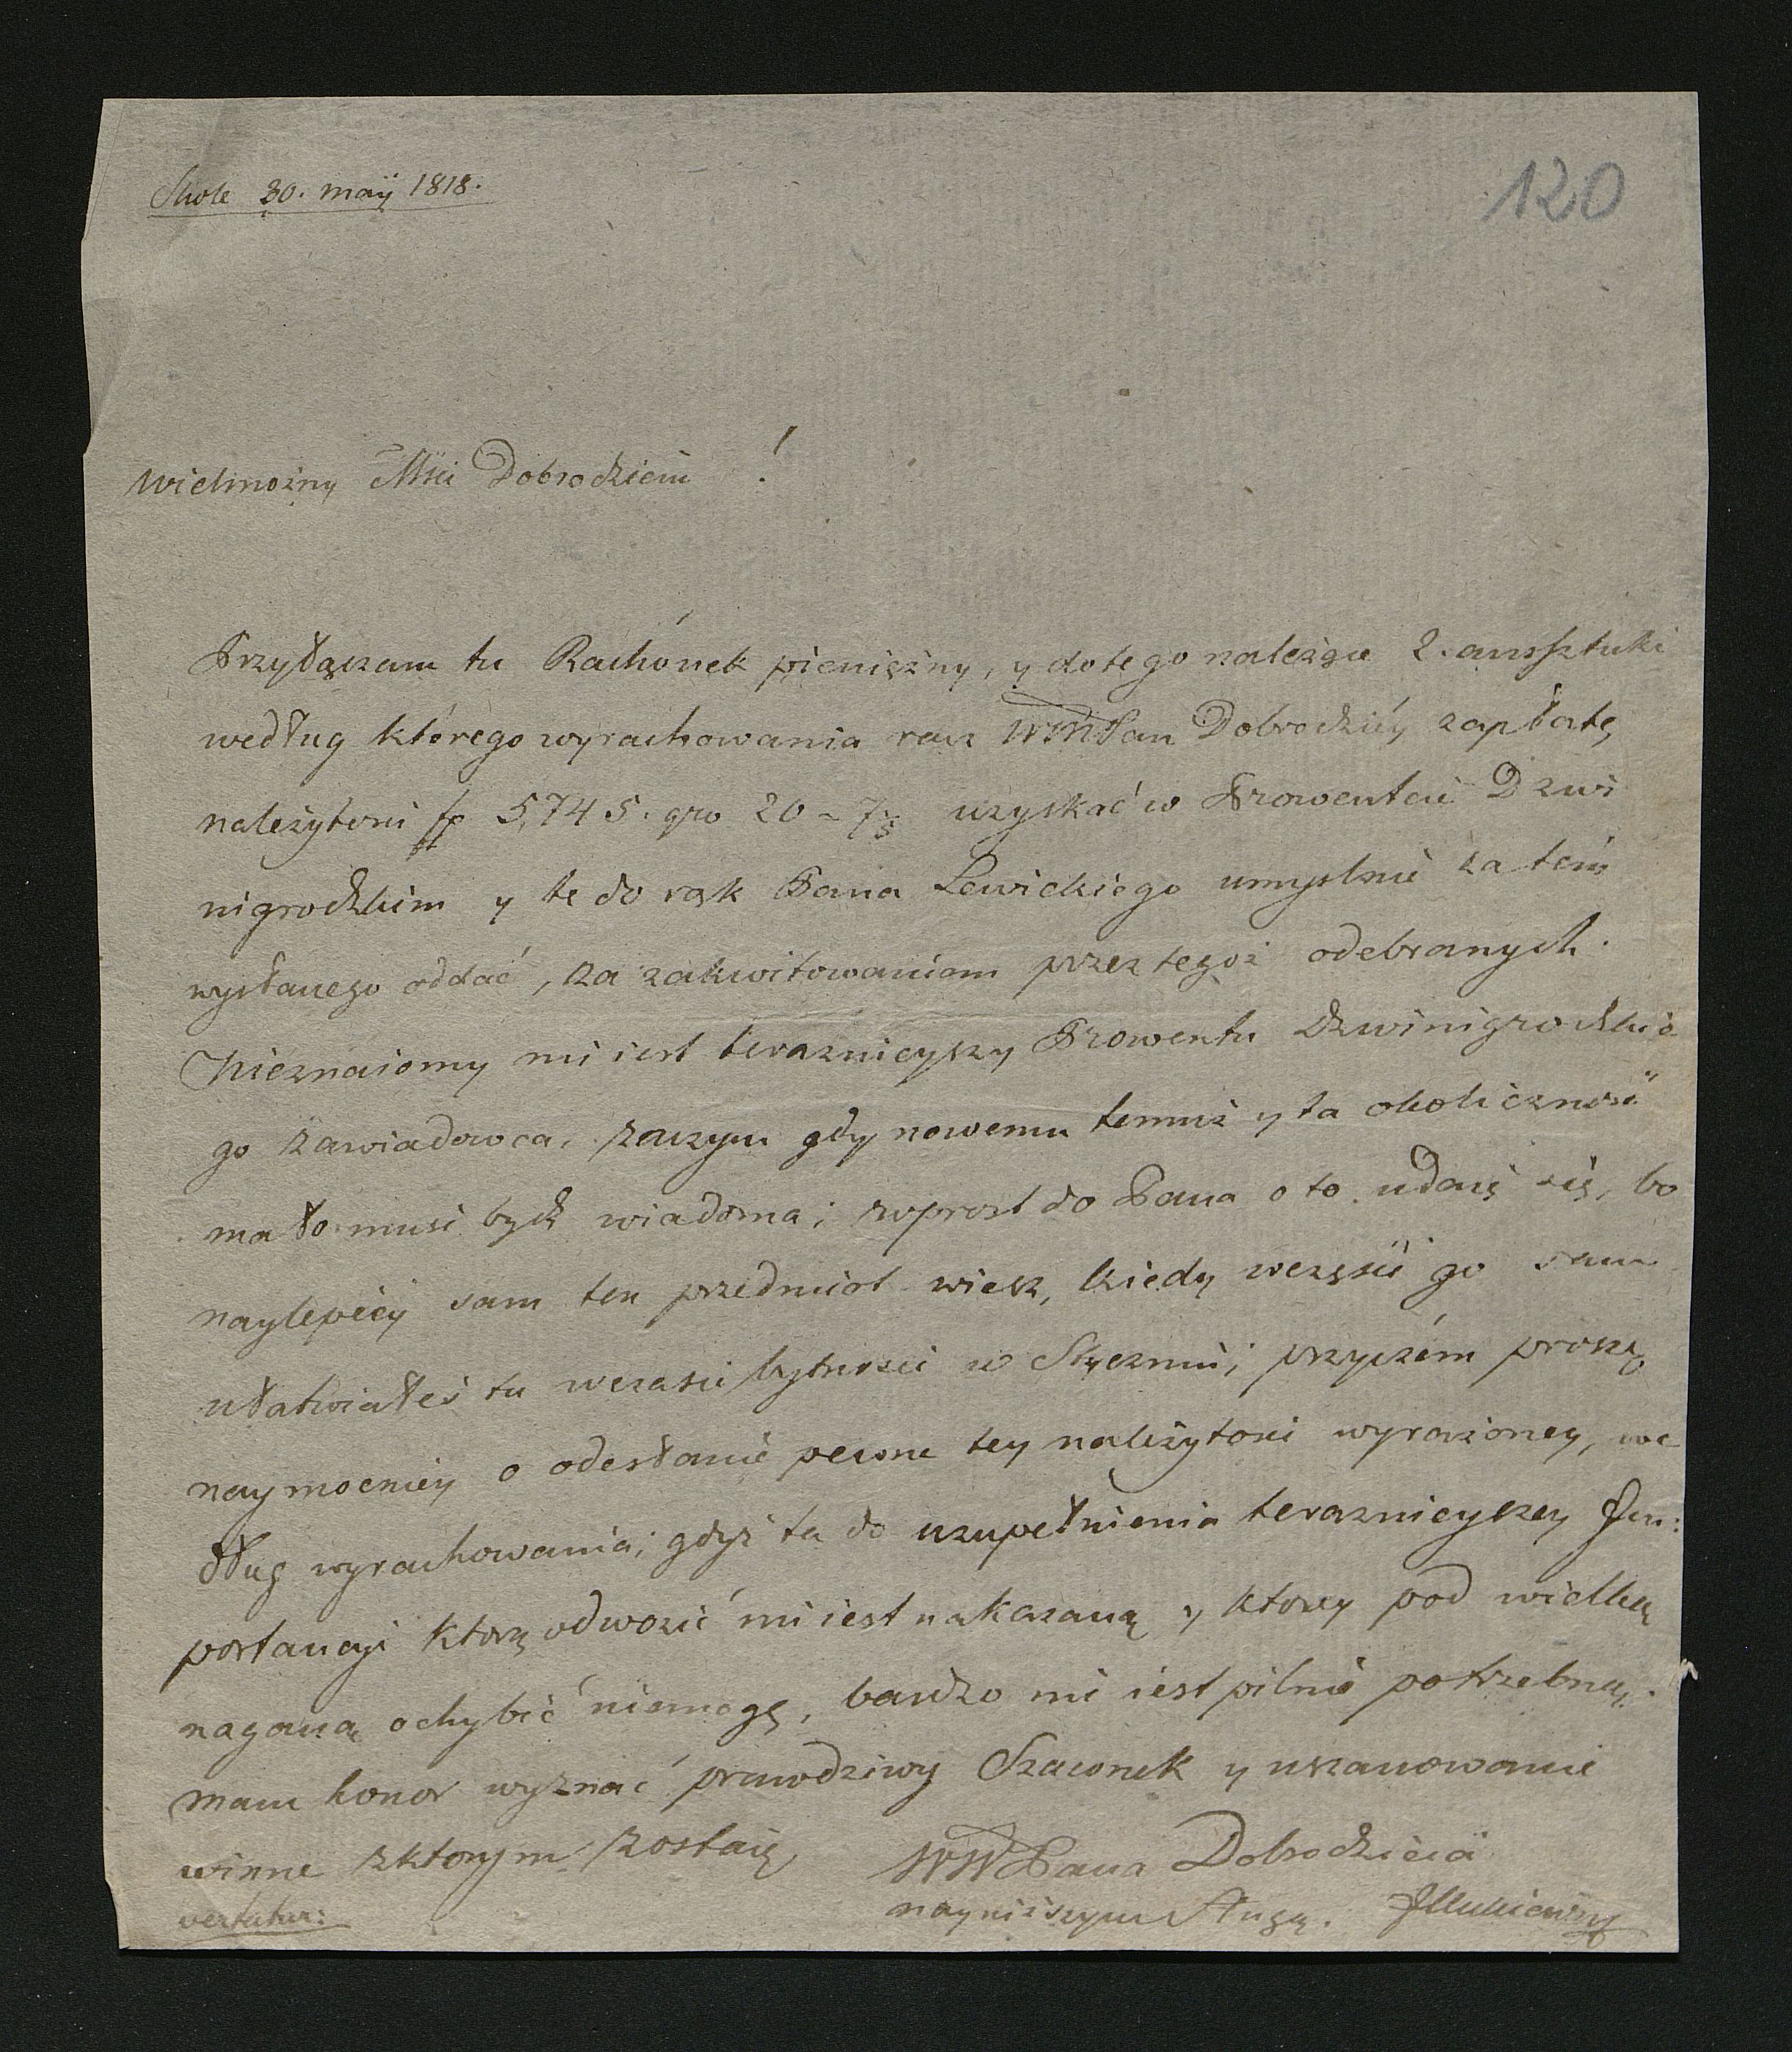 Skole 30. maÿ 1818.
120
Wielmożny Mści Dobrodzieiu !
Przyłączam tu Rachónek pieniężny, y do tego należące 2. aussztuki
według którego wyrachowania racz WMPan Dobrodziéy zapłatę
należytości fp 5,745. gro 20 - uzyskać w Prowentcie Dzwi
nigrodzkim y te do rąk Pana Lewickiego umyslnie za tem
wysłanego oddać, za zakwitowaniem przez tegoż odebranych.
Nieznaiomy mi iest teraznieyszy Prowentu Dzwinigrodzkie
go zawiadowca, zaczym gdy nowemu temuż y ta okoliczność
mało musi bydź wiadoma; wprost do Pana o to udaię się, bo
naylepiey sam ten przedmiot wiesz, kiedy wczęści go sam
ułatwiałeś tu wczasie bytności w Styczniu; przyczém proszę
naymocniey o odesłanie pewne tey należytości wyrażoney, we
dług wyrachowania; gdyż ta do uzupełnienia teraznieyszey Im:
portancyi ktorą odwozić mi iest nakazaną y ktorey pod wielką
naganą ochybić niemogę, bardzo mi iest pilnie potrzebną.
Mam honor wyznać prawdziwy Szacunek y uszanowanie
winne zktorym zostaię
WWPana Dobrodzieia
vertatur:
nayniższym Sługą.